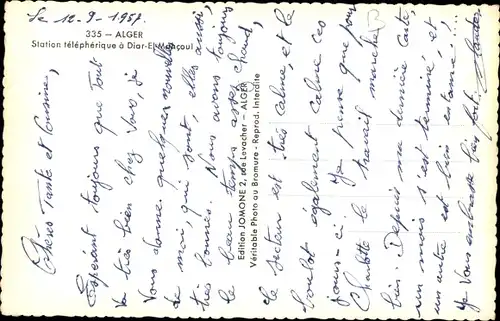 Le 12-9-1957.
335 — ALGER
Station téléphérique à Diar-El-Maçoul
Chères Tante et Cousine,
Espérant toujours que tout
va très bien chez Vous, je
Vous donne quelques nouvelles
de moi, qui sont, elles aussi,
très bonnes. Nous avons toujours
le beau temps assez chaud,
le secteur est très calme, et le
boulot également calme ces
jours-ci. Je pense que pour
Charlotte le travail marche
bien. Depuis ma dernière carte,
un mois s'est terminé, et
un autre est bien entamé...
Je Vous embrasse bien fort.
Edition JOMONE 2, rue Levacher — ALGER
Véritable Photo au Bromure - Reprod. Interdite